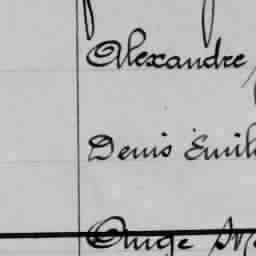 Alexandre
Denis Émile
Ange